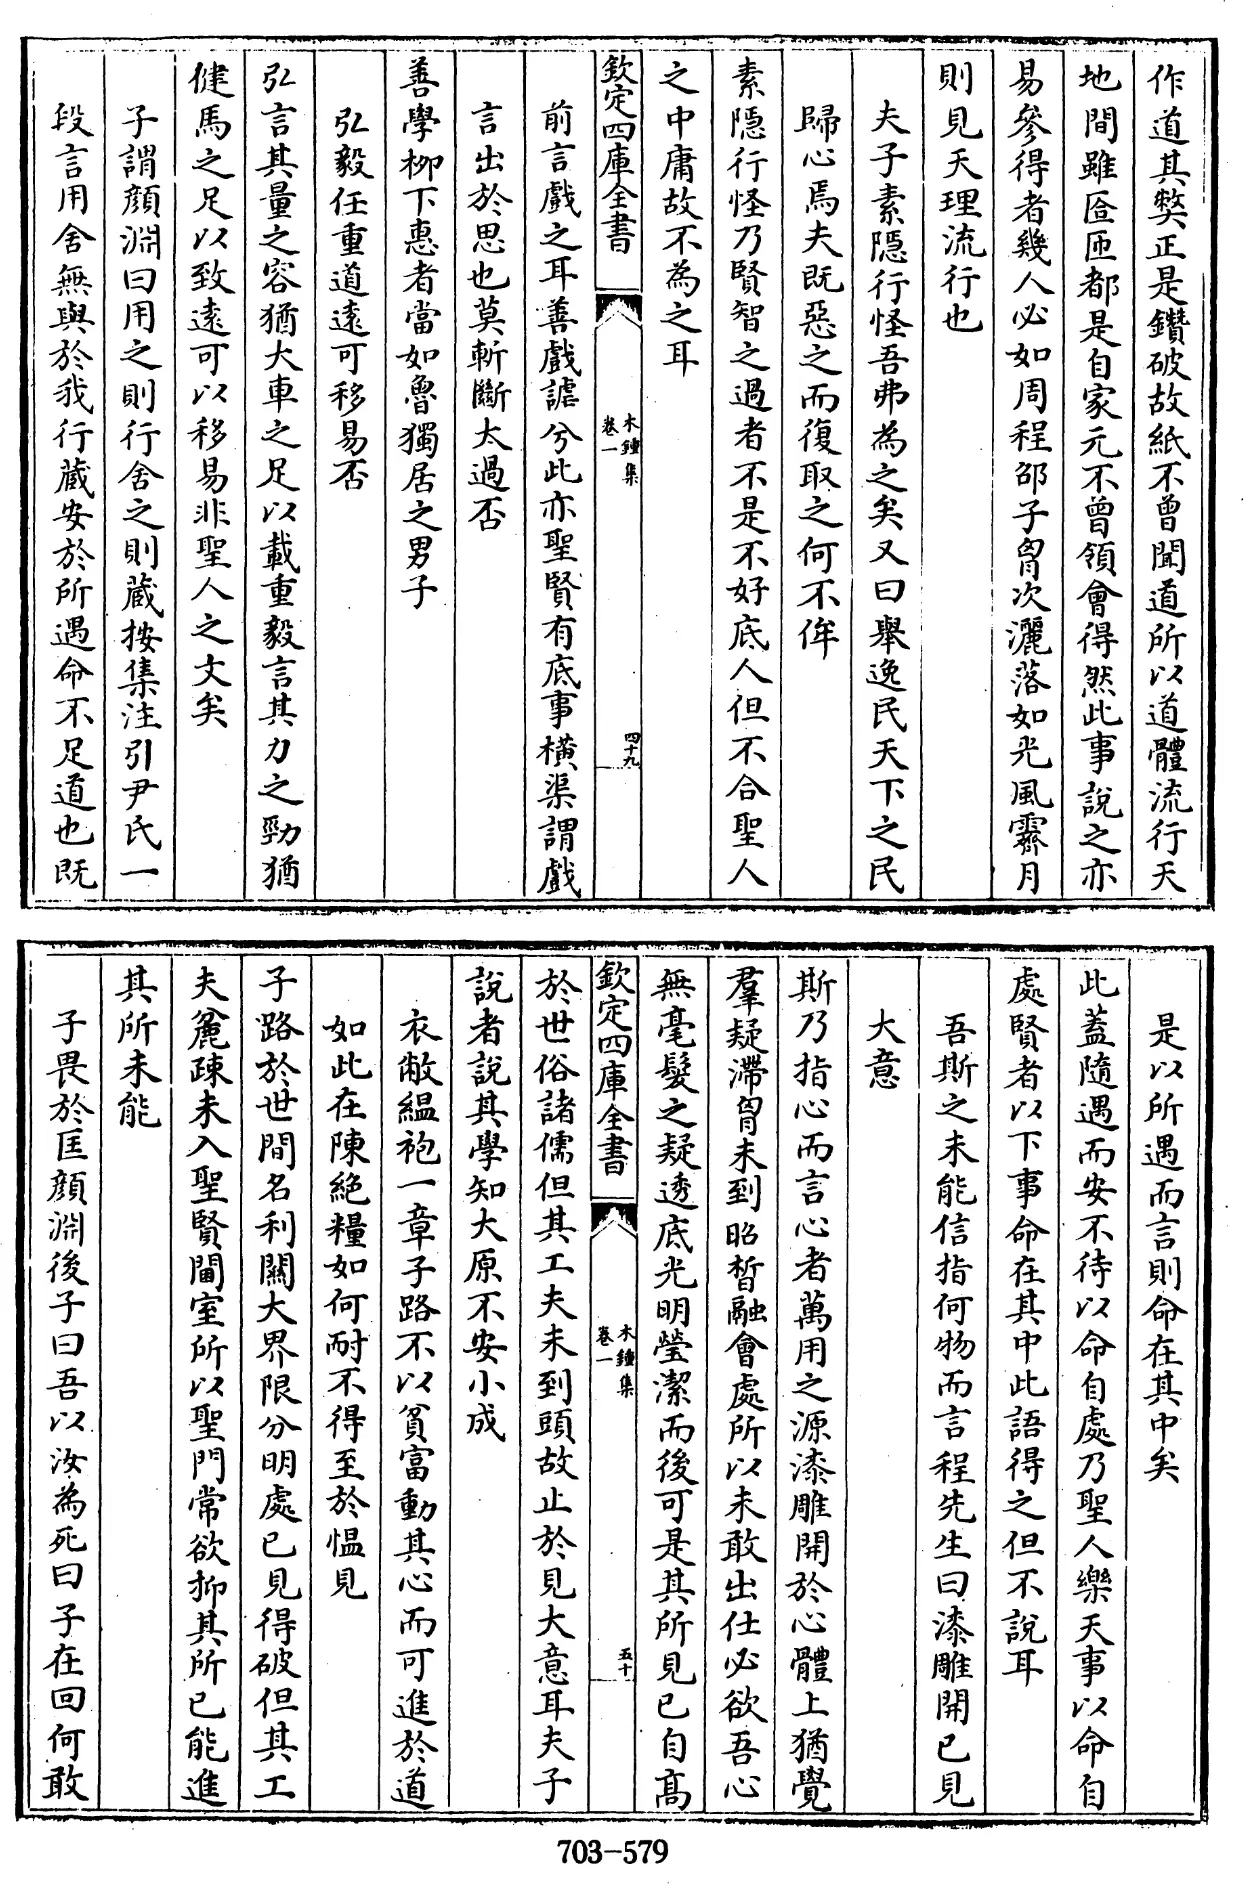 作道其弊正是鑽破故紙不曾聞道所以道體流行天
地間雖匝匝都是自家元不曾領會得然此事說之亦
易參得者幾人必如周程邵子胷次灑落如光風霽月
則見天理流行也
夫子素隱行怪吾弗為之矣又曰舉逸民天下之民
歸心焉夫既惡之而復取之何不侔
素隱行怪乃賢智之過者不是不好底人但不合聖人
之中庸故不為之耳
欽定四庫全書
木鍾集
卷一
四十九
前言戲之耳善戲謔兮此亦聖賢有底事橫渠謂戲
言出於思也莫斬斷太過否
善學柳下惠者當如魯獨居之男子
弘毅任重道逺可移易否
弘言其量之容猶大車之足以載重毅言其力之勁猶
健馬之足以致逺可以移易非聖人之文矣
子謂顔淵曰用之則行舍之則蔵按集注引尹氏一
段言用舍無與於我行蔵安於所遇命不足道也既
是以所遇而言則命在其中矣
此蓋隨遇而安不待以命自處乃聖人樂天事以命自
處賢者以下事命在其中此語得之但不說耳
吾斯之未能信指何物而言程先生曰漆雕開已見
大意
斯乃指心而言心者萬用之源漆雕開於心體上猶覺
羣疑滯胷未到昭晳融會處所以未敢出仕必欲吾心
無毫髮之疑透底光明瑩潔而後可是其所見已自髙
欽定四庫全書
木鍾集
卷一
五十
於世俗諸儒但其工夫未到頭故止於見大意耳夫子
說者說其學知大原不安小成
衣敝緼袍一章子路不以貧富動其心而可進於道
如此在陳絶糧如何耐不得至於愠見
子路於世間名利關大界限分明處已見得破但其工
夫麄疎未入聖賢閫室所以聖門常欲抑其所已能進
其所未能
子畏於匡顔淵後子曰吾以汝為死曰子在回何敢
703-579